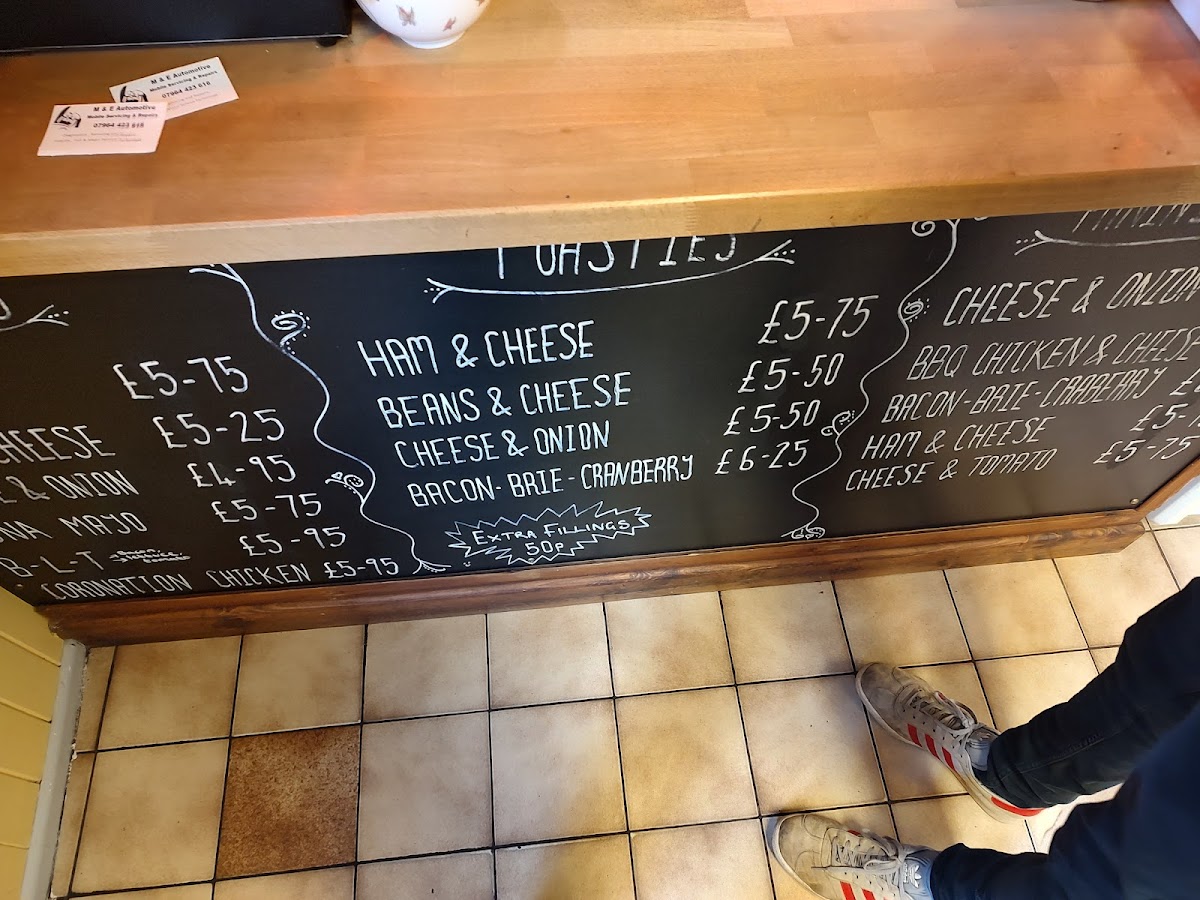 M & E Automotive
Mobile Servicing & Repairs
07964 423 618
M & E Automotive
Mobile Servicing & Repairs
07964 423 618
£5-75
CHEESE £5-25
& ONION £4-95
MAYO £5-75
B-L-T £5-95
CORONATION CHICKEN £5-95
TOASTIES
HAM & CHEESE £5-75
BEANS & CHEESE £5-50
CHEESE & ONION £5-50
BACON-BRIE-CRANBERRY £6-25
EXTRA FILLINGS
50P
CHEESE & ONION
BBQ CHICKEN & CHEESE
BACON-BRIE-CRABERRY
HAM & CHEESE
CHEESE & TOMATO £5-75